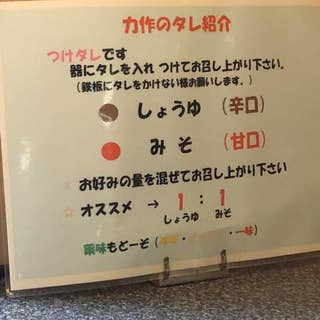 力作のタレ紹介
つけダレです
器にタレを入れ つけてお召し上がり下さい。
（鉄板にタレをかけない様お願いします。）
● しょうゆ （辛口）
● みそ （甘口）
お好みの量を混ぜてお召し上がり下さい
☆ オススメ → 1 : 1
しょうゆ みそ
薬味もどーぞ（ ・ ・一味）